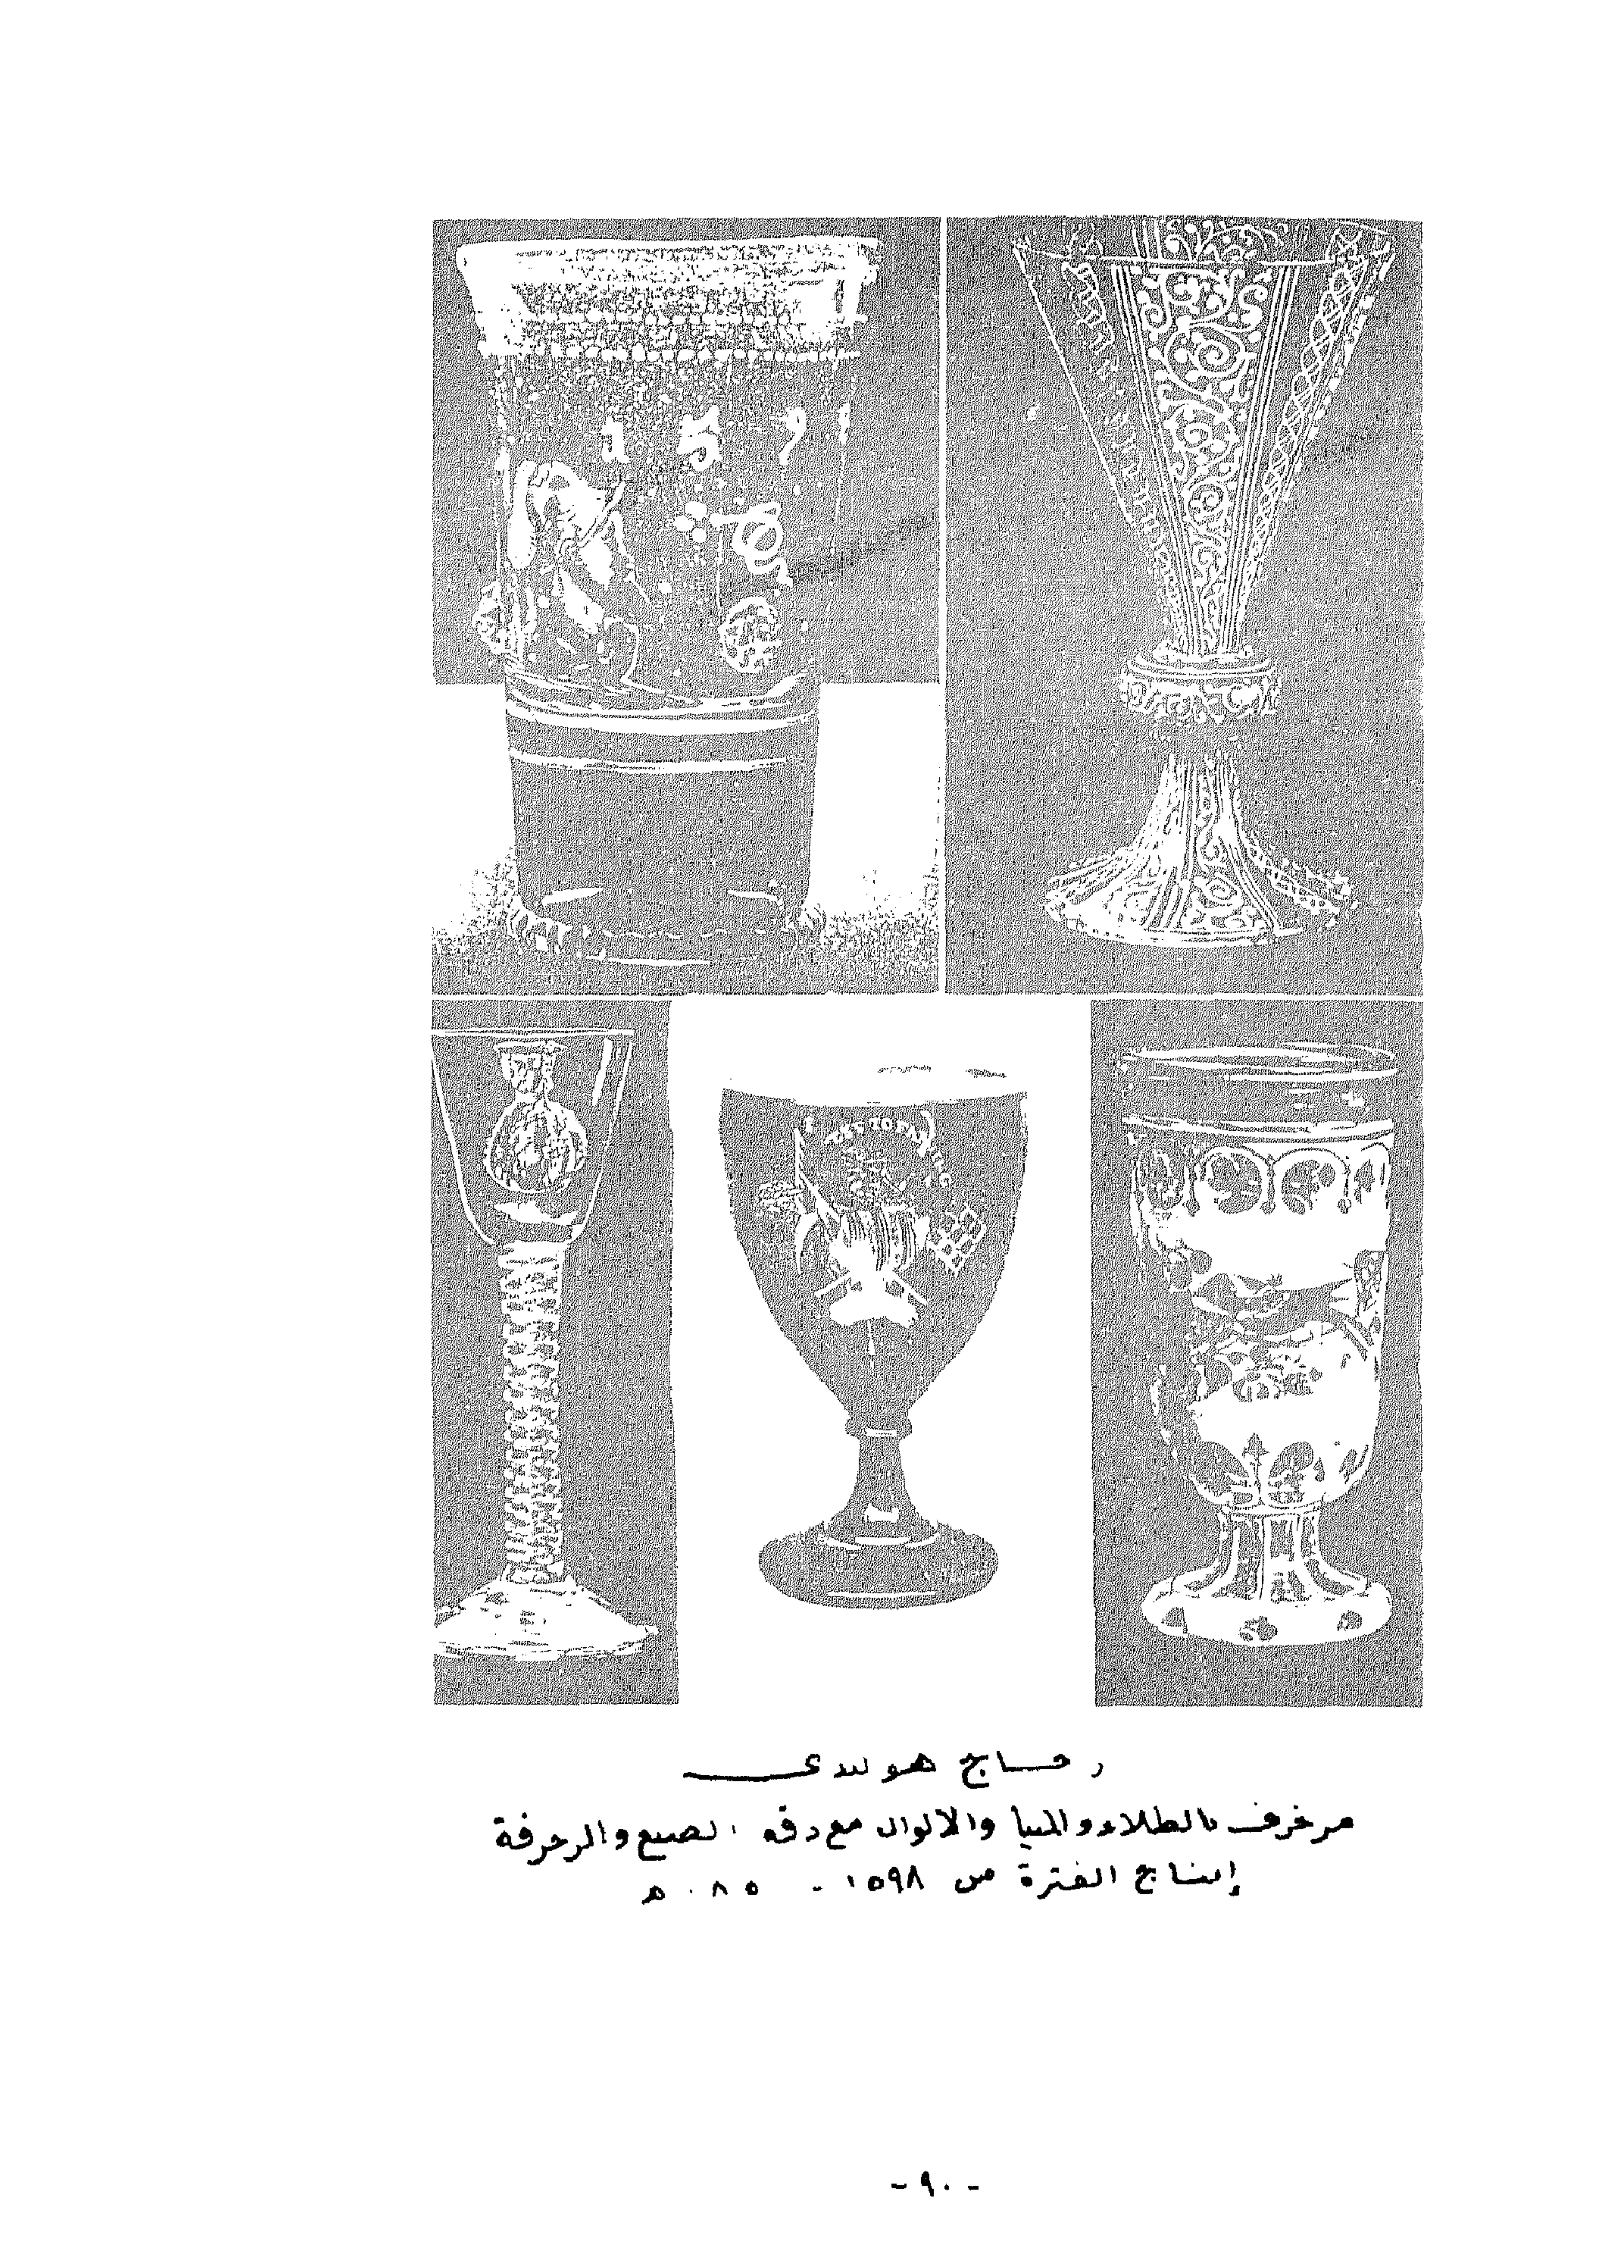 زجاج هولندى
مزخرف بالطلاء والمينا والالوان مع دقة الصنع والزخرفة
إنتاج الفترة من ١٥٩٨ -
- ٩٠ -